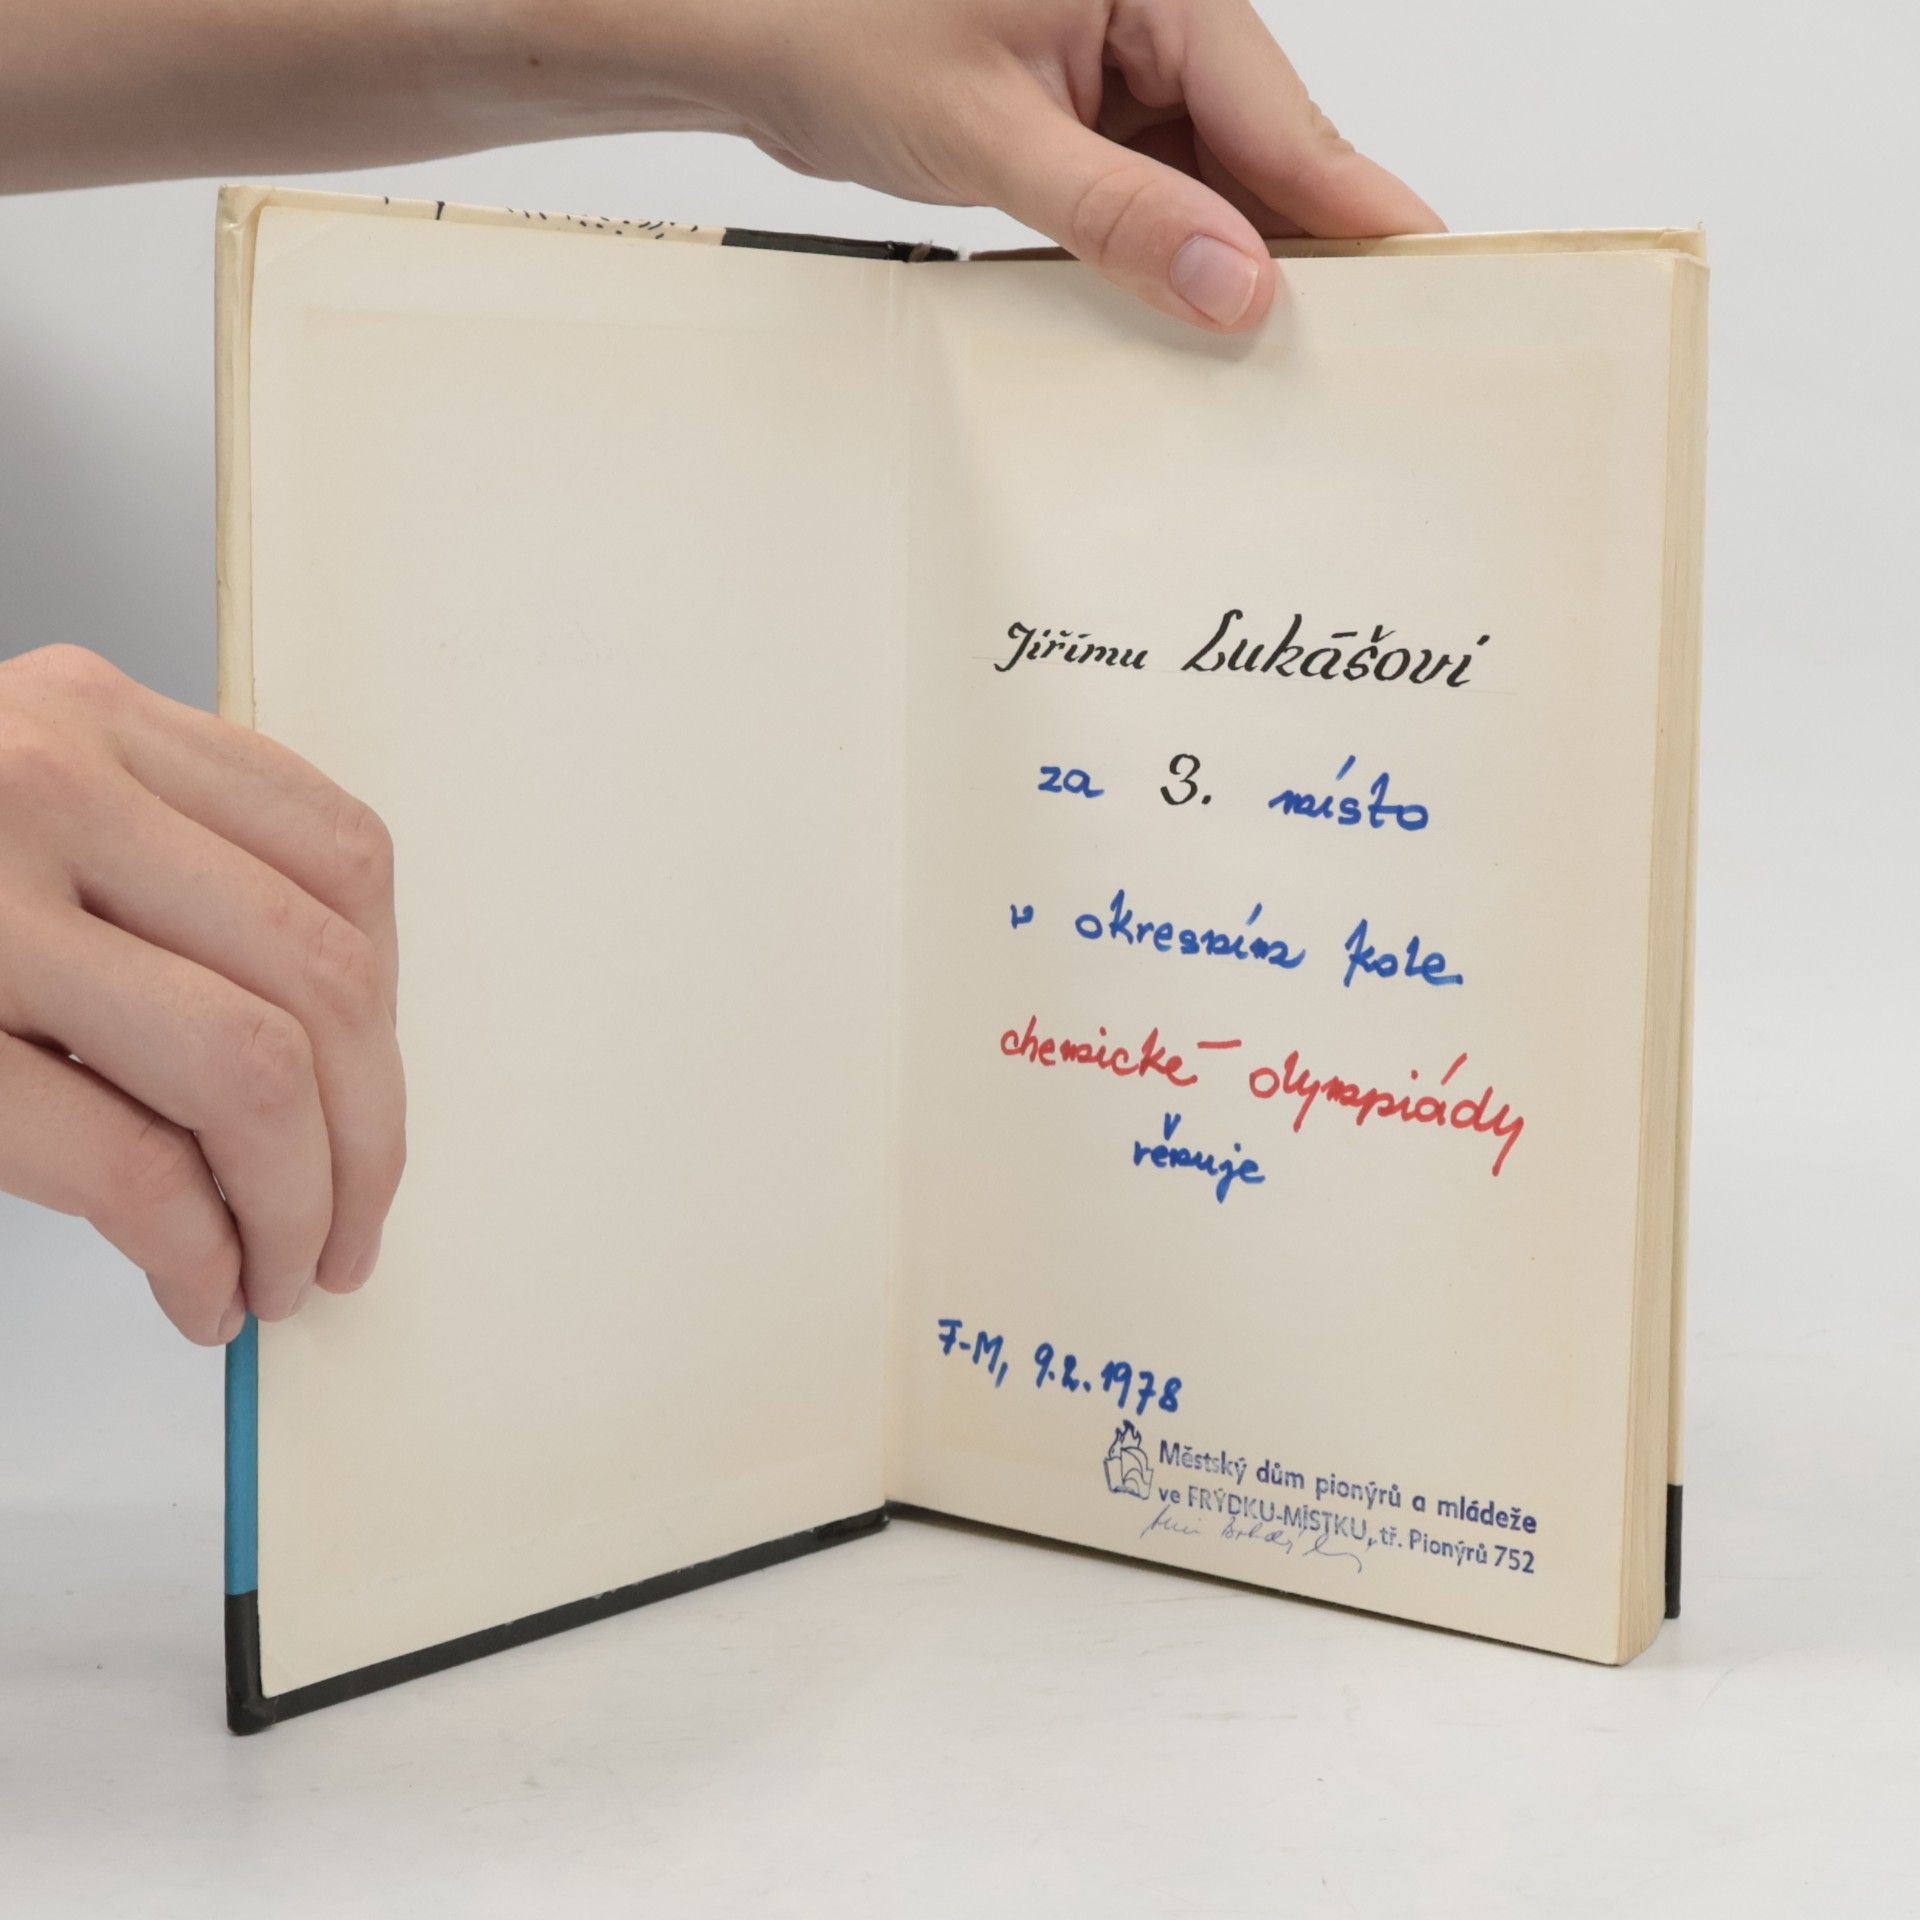 Jiřímu Lukášovi
za 3. místo
v okresním kole
chemické olympiády
věnuje
F-M, 9.2.1978
Městský dům pionýrů a mládeže
ve FRÝDKU-MÍSTKU, tř. Pionýrů 752